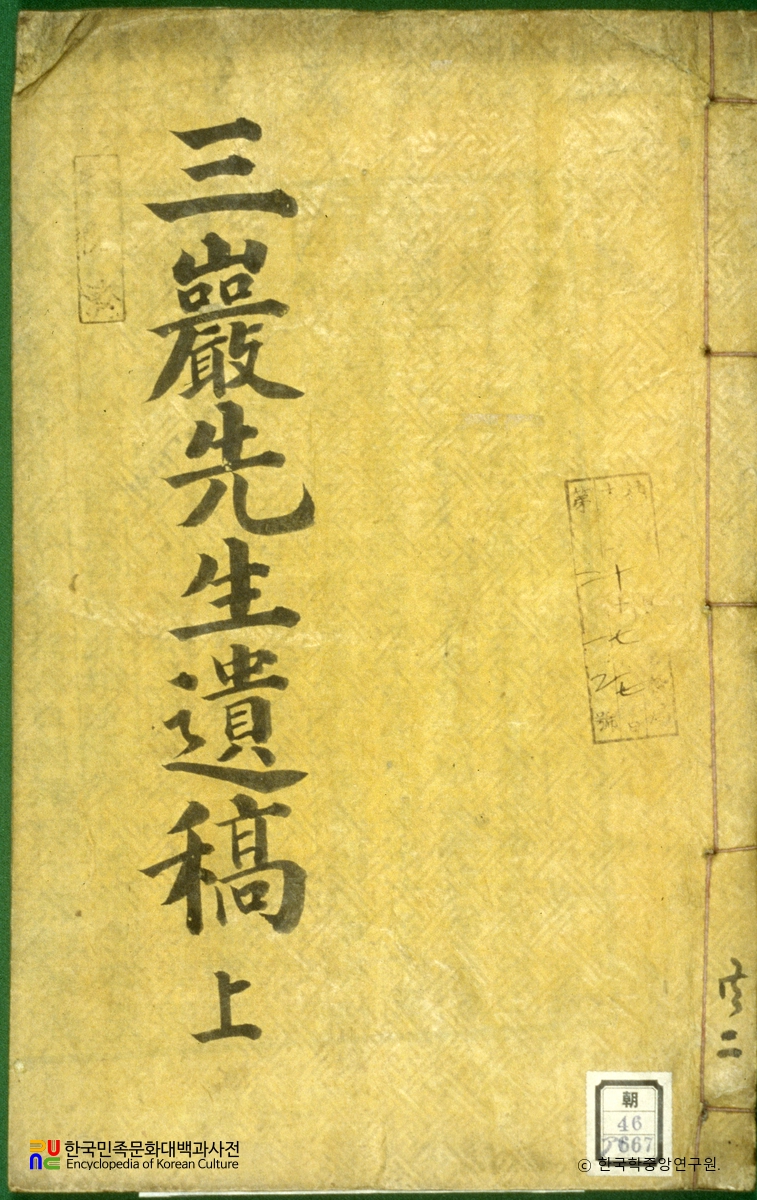 三巖先生遺稿 上
第
號
共二
朝
46
667
한국민족문화대백과사전
Encyclopedia of Korean Culture
© 한국학중앙연구원.